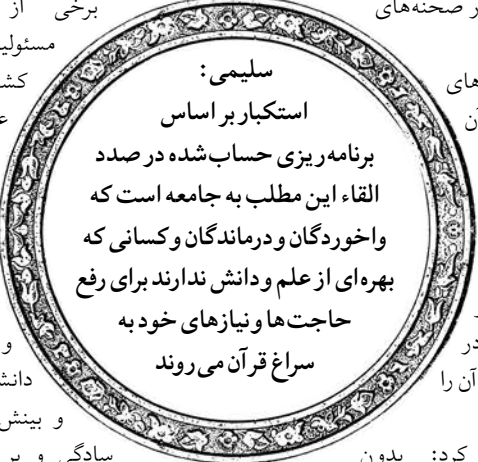 ر صحنه‌های
برخی از
مسئولی
کش
های
آن
سلیمی:
استکبار بر اساس
برنامه‌ریزی حساب‌شده در صدد
القاء این مطلب به جامعه است که
واخوردگان و درماندگان و کسانی که
بهره‌ای از علم و دانش ندارند برای رفع
حاجت‌ها و نیازهای خود به
سراغ قرآن می‌روند
در
آن را
کرد: بدون
و
دانش
و بینش
سادگی و بر